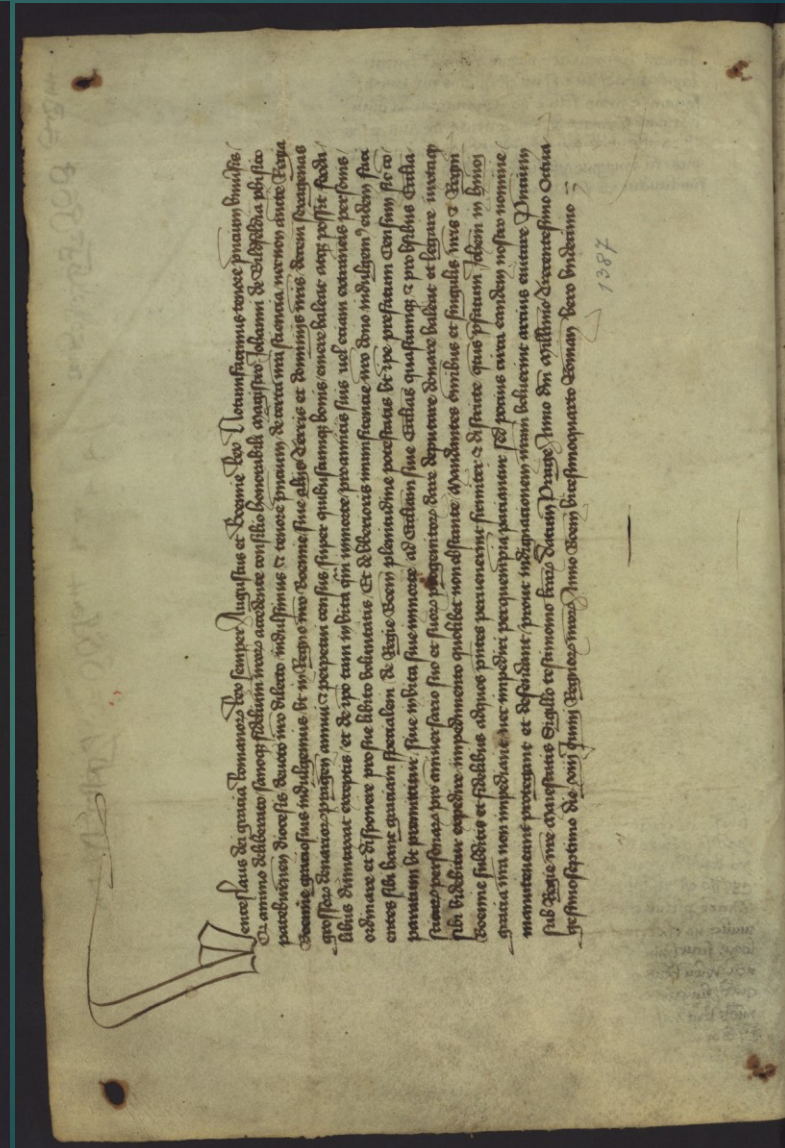 Wenceslaus dei gracia Romanorum Rex semper Augustus et Boemie Rex Notumfacimus tenore pncium vniuersis
Qz animo deliberato sanoqz fidelium nrorum accedente consilio honorabili Magistro Johanni de phisico
diocesis deuoto nro dilecto indulsimus et tenore pncium de certa nra sciencia necnon aucte Regia
Boemie graciosius indulgemus vt in Regno nro Boemie siue alijs Terris et dominijs nris decem sexagenas
grossorum denariorum pragen annui et perpetui census super quibuscumqz bonis emere valeat atqz possit feoda
libus dumtaxat exceptis et de ipo tam in vita qm in morte pro amicis suis uel eciam extraneis personis
ordinare et disponere pro sue libito voluntatis Et vberioris munificencie nro dono indulgem eidem faci
entes sibi hanc graciam specialem de Regie Boem plenitudine potestatis vt ipe prefatum Censum sic co
paratum vt premittitur siue in vita siue in morte ad Ecclesiam siue Ecclias quascumqz et pro vsibus Ecclia
sticarum personarum pro anniuersario suo et suorum progenitorum dare deputare donare valeat et legare iuxta qz
sibi videbitur expedire impedimento quolibet non obstante Mandantes omnibus et singulis nris et Regni
Boemie subditis et fidelibus ad quos pntes peruenerint firmiter et districte qtus pfatum Johem in hmoj
gracia nra non impediant nec impediri per quempiam paciantur sed pocius circa eandem nostro nomine
manuteneant protegant et defendant prout indignacionem nram voluerint arcius euitare Pncium
sub Regie nre Maiestatis Sigillo testimonio lrarum Datum Prage Anno dni Millesimo Trecentesimo Octua
gesimoseptimo die Junij Regnorum nrorum Anno Boem vicesimoquarto Roman vero vndecimo
1387